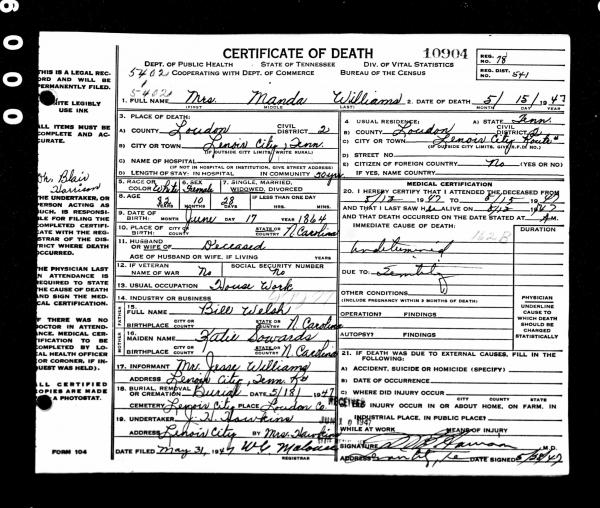 CERTIFICATE OF DEATH 10904
DEPT. OF PUBLIC HEALTH STATE OF TENNESSEE DIV. OF VITAL STATISTICS
5402 COOPERATING WITH DEPT. OF COMMERCE BUREAU OF THE CENSUS
REG. NO. 78
REG. DIST. NO. 541
5402
1. FULL NAME Mrs. Manda Williams 2. DATE OF DEATH 5/ 15/ 1947
(FIRST) (MIDDLE) (LAST) MONTH DAY YEAR
3. PLACE OF DEATH:
A) COUNTY Loudon CIVIL DISTRICT 2
B) CITY OR TOWN Lenoir City, Tenn.
(IF OUTSIDE CITY LIMITS, WRITE RURAL)
C) NAME OF HOSPITAL
(IF NOT IN HOSPITAL OR INSTITUTION, GIVE STREET ADDRESS)
D) LENGTH OF STAY: IN HOSPITAL IN COMMUNITY 50 yrs
4. USUAL RESIDENCE: A) STATE Tenn.
B) COUNTY Loudon CIVIL DISTRICT 2
C) CITY OR TOWN Lenoir City Route
D) STREET NO.
E) CITIZEN OF FOREIGN COUNTRY? No (YES OR NO)
IF YES, NAME COUNTRY
5. RACE OR COLOR White 6. SEX Female 7. SINGLE, MARRIED, WIDOWED, DIVORCED
8. AGE 82 10 28 IF LESS THAN ONE DAY
HRS. MIN.
9. DATE OF BIRTH: MONTH June DAY 17 YEAR 1864
10. PLACE OF BIRTH CITY OR COUNTY STATE OR COUNTRY N Carolina
11. HUSBAND OR WIFE OF Deceased
AGE OF HUSBAND OR WIFE, IF LIVING YEARS
12. IF VETERAN NAME OF WAR No SOCIAL SECURITY NUMBER No
13. USUAL OCCUPATION House Work
14. INDUSTRY OR BUSINESS
FATHER
15. FULL NAME Bill Welsh
BIRTHPLACE CITY OR COUNTY STATE OR COUNTRY N Carolina
MOTHER
16. MAIDEN NAME Katie Sowards
BIRTHPLACE CITY OR COUNTY STATE OR COUNTRY N Carolina
17. INFORMANT Mr. Jesse Williams
ADDRESS Lenoir City, Tenn
18. BURIAL, REMOVAL OR CREMATION Burial DATE 5/18/ 1947
CEMETERY Lenoir City PLACE Loudon Co.
19. UNDERTAKER J. H. Hawkins
ADDRESS Lenoir City BY Mrs. Hawkins
DATE FILED May 31, 1947
REGISTRAR
MEDICAL CERTIFICATION
20. I HEREBY CERTIFY THAT I ATTENDED THE DECEASED FROM
5/12 1947 TO 5/15 1947
AND THAT I LAST SAW H ALIVE ON
AND THAT DEATH OCCURRED ON THE DATE STATED AT M.
IMMEDIATE CAUSE OF DEATH: DURATION
162B
DUE TO: Senility
OTHER CONDITIONS
(INCLUDE PREGNANCY WITHIN 3 MONTHS OF DEATH)
OPERATION? FINDINGS
AUTOPSY? FINDINGS
PHYSICIAN
UNDERLINE CAUSE TO WHICH DEATH SHOULD BE CHARGED STATISTICALLY
21. IF DEATH WAS DUE TO EXTERNAL CAUSES, FILL IN THE FOLLOWING:
A) ACCIDENT, SUICIDE OR HOMICIDE (SPECIFY)
B) DATE OF OCCURRENCE
C) WHERE DID INJURY OCCUR
CITY COUNTY STATE
DID INJURY OCCUR IN OR ABOUT HOME, ON FARM, IN
INDUSTRIAL PLACE, IN PUBLIC PLACE?
WHILE AT WORK MEANS OF INJURY
SIGNATURE M.D.
ADDRESS DATE SIGNED
RECEIVED
JUN 10 1947
THIS IS A LEGAL RECORD AND WILL BE
PERMANENTLY FILED.
WRITE LEGIBLY
USE INK
ALL ITEMS MUST BE
COMPLETE AND AC-
CURATE.
Dr. Blair
Harrison
THE UNDERTAKER, OR
PERSON ACTING AS
SUCH, IS RESPONSI-
BLE FOR FILING THE
COMPLETED CERTIFI-
CATE WITH THE REG-
ISTRAR OF THE DIS-
TRICT WHERE DEATH
OCCURRED.
THE PHYSICIAN LAST
IN ATTENDANCE IS
REQUIRED TO STATE
THE CAUSE OF DEATH
AND SIGN THE MED-
ICAL CERTIFICATION.
IF THERE WAS NO
DOCTOR IN ATTEND-
ANCE, MEDICAL CER-
TIFICATION TO BE
COMPLETED BY LO-
CAL HEALTH OFFICER
(OR CORONER, IF IN-
QUEST WAS HELD).
ALL CERTIFIED
COPIES ARE MADE
BY PHOTOSTAT.
FORM 104